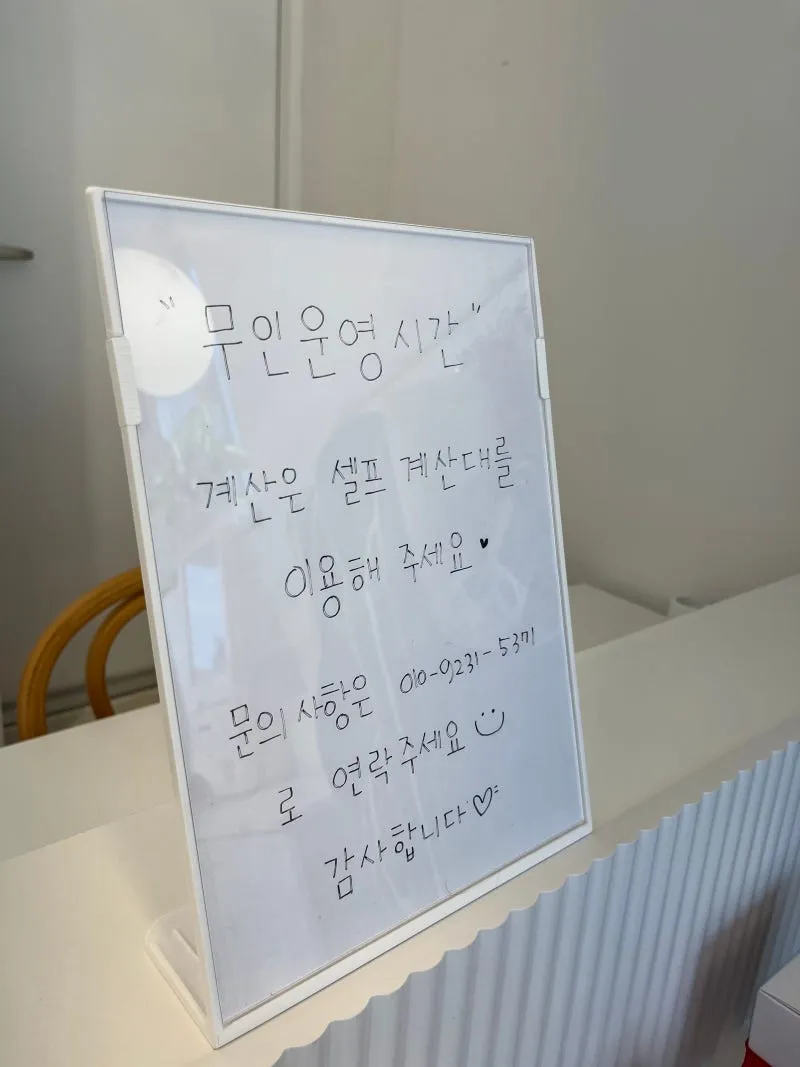 "무인운영시간"
계산은 셀프 계산대를
이용해 주세요♥
문의 사항은 010-9231-5371
로 연락주세요
감사합니다♡